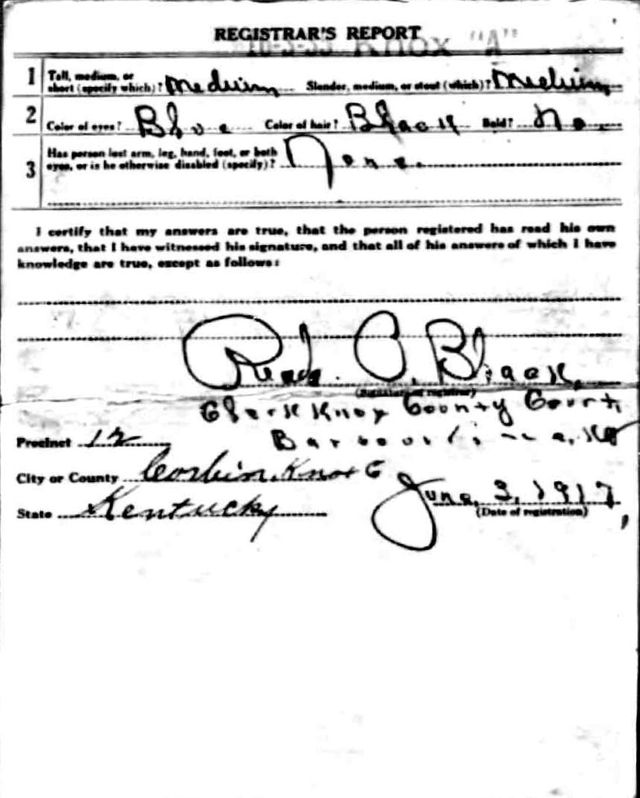 REGISTRAR'S REPORT
16-3-33 KNOX "A"
1 Tall, medium, or short (specify which)? Medium Slender, medium, or stout (which)? Medium
2 Color of eyes? Blue Color of hair? Black Bald? No.
3 Has person lost arm, leg, hand, foot, or both
eyes, or is he otherwise disabled (specify)? None.
I certify that my answers are true, that the person registered has read his own
answers, that I have witnessed his signature, and that all of his answers of which I have
knowledge are true, except as follows:
Read P. Black,
(Signature of registrar)
Clerk Knox County Court
Precinct 12 Barbourville, Ky
City or County Corbin, Knox C
State Kentucky June, 3, 1917,
(Date of registration)